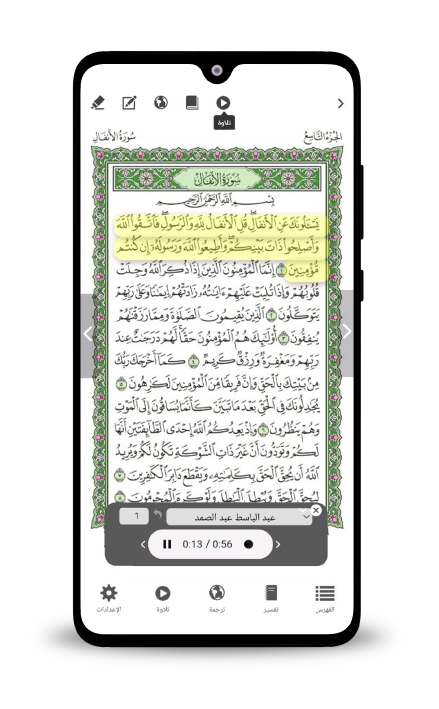 تلاوة
الجُزْءُ التَّاسِعُ
سُورَةُ الأَنفَالِ
سُورَةُ الأَنفَالِ
بِسْمِ اللَّهِ الرَّحْمَٰنِ الرَّحِيمِ
يَسْـَٔلُونَكَ عَنِ ٱلْأَنفَالِۖ قُلِ ٱلْأَنفَالُ لِلَّهِ وَٱلرَّسُولِۖ فَٱتَّقُوا۟ ٱللَّهَ
وَأَصْلِحُوا۟ ذَاتَ بَيْنِكُمْۖ وَأَطِيعُوا۟ ٱللَّهَ وَرَسُولَهُۥٓ إِن كُنتُم
مُّؤْمِنِينَ ١ إِنَّمَا ٱلْمُؤْمِنُونَ ٱلَّذِينَ إِذَا ذُكِرَ ٱللَّهُ وَجِلَتْ
قُلُوبُهُمْ وَإِذَا تُلِيَتْ عَلَيْهِمْ ءَايَٰتُهُۥ زَادَتْهُمْ إِيمَٰنًا وَعَلَىٰ رَبِّهِمْ
يَتَوَكَّلُونَ ٢ ٱلَّذِينَ يُقِيمُونَ ٱلصَّلَوٰةَ وَمِمَّا رَزَقْنَٰهُمْ
يُنفِقُونَ ٣ أُو۟لَٰٓئِكَ هُمُ ٱلْمُؤْمِنُونَ حَقًّاۚ لَّهُمْ دَرَجَٰتٌ عِندَ
رَبِّهِمْ وَمَغْفِرَةٌ وَرِزْقٌ كَرِيمٌ ٤ كَمَآ أَخْرَجَكَ رَبُّكَ
مِنۢ بَيْتِكَ بِٱلْحَقِّ وَإِنَّ فَرِيقًا مِّنَ ٱلْمُؤْمِنِينَ لَكَٰرِهُونَ ٥
يُجَٰدِلُونَكَ فِى ٱلْحَقِّ بَعْدَ مَا تَبَيَّنَ كَأَنَّمَا يُسَاقُونَ إِلَى ٱلْمَوْتِ
وَهُمْ يَنظُرُونَ ٦ وَإِذْ يَعِدُكُمُ ٱللَّهُ إِحْدَى ٱلطَّآئِفَتَيْنِ أَنَّهَا
لَكُمْ وَتَوَدُّونَ أَنَّ غَيْرَ ذَاتِ ٱلشَّوْكَةِ تَكُونُ لَكُمْ وَيُرِيدُ
ٱللَّهُ أَن يُحِقَّ ٱلْحَقَّ بِكَلِمَٰتِهِۦ وَيَقْطَعَ دَابِرَ ٱلْكَٰفِرِينَ ٧
لِيُحِقَّ ٱلْحَقَّ وَيُبْطِلَ ٱلْبَٰطِلَ وَلَوْ كَرِهَ ٱلْمُجْرِمُونَ ٨
عبد الباسط عبد الصمد
1
0:13 / 0:56
الفهرس
تفسير
ترجمة
تلاوة
الإعدادات